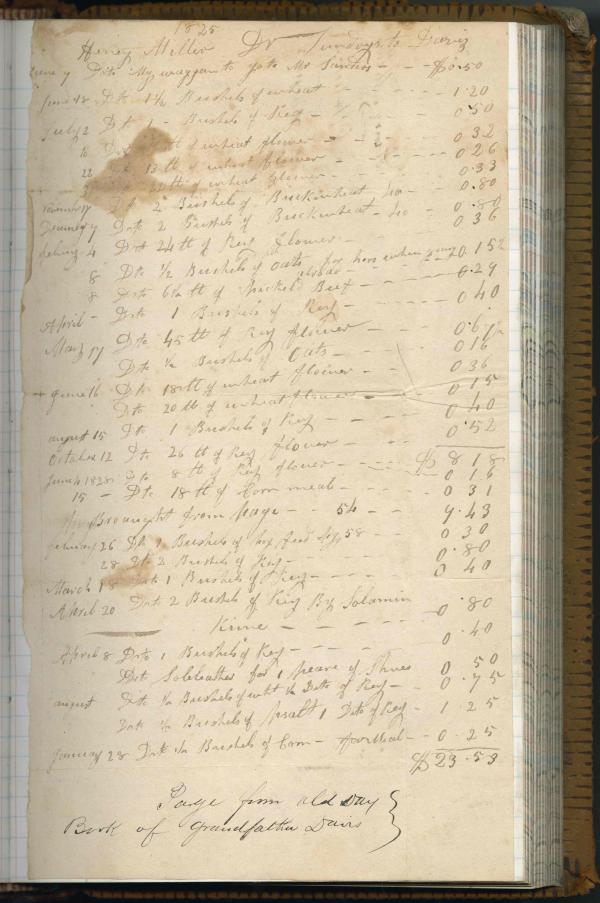 1825
Henry Miller Dr Sundrys to Davis
June 7 Dto My waggan to go to Mr - - $0.50
June 18 Dto 1½ Bushels of wheat - - - - 1.20
July 2 Dto 1 - Bushels of Rey - - - 0.50
16 of wheat flower - - 0 32
22 Dto 13 tt of wheat flower - - 0.26
tt of wheat flower - - 0.33
November 17 Dto 2 Bushels of Buckwheat 40 - 0.80
January 7 Dto 2 Bushels of Buckwheat - 40 - 0.80
febury 4 Dto 24 tt of Rey flower - - 0 36
8 Dto ½ Bushels of oats for hors when - 0.15
8 Dto 6¼ tt of Beef - - - 0.29
April - Dto 1 Bushels of Rey - - - 0 40
May 17 Dto 45 tt of Rey flower - - - 0.67
Dto ½ Bushels of Oats - - - 0 16
+ June 16 Dto 18 tt of wheat flower - - 0 36
Dto 20 tt of wheat flower - - 0 15
august 15 Dto 1 Bushels of Rey - - - 0 40
October 12 Dto 26 tt of Rey flower - - - 0.52
$ 8 18
June 4 1828 Dto 8 tt of Rey flower - - - 0 16
15 - Dto 18 tt of Corn meal - - - 0 31
Brought from page - - 54 - - 9.43
febuary 26 Dto 1 Bushels of feed 58 - - 0 30
28 Dto 2 Bushels of Rey - - - 0.80
March 18 Dto 1 Bushels of Rey - - - 0 40
April 20 Dto 2 Bushels of Rey By Solamin
Kine - - - - 0.80
April 8 Dto 1 Bushels of Rey - - - 0.40
Dto Soleleather for 1 peare of Shues 0 50
august Dto ½ Bushels of ½ Dito of Rey - 0.75
Dto ½ Bushels of salt 1 Dito of Rey - 1.25
January 28 Dto ½ Bushels of Corn - - 0.25
$23.53
Page from old Day
Book of Grandfather Davis